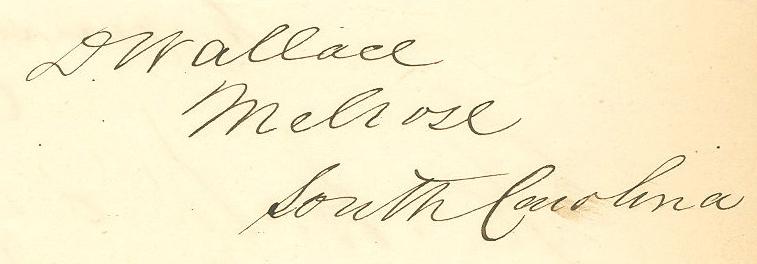 D. Wallace
Melrose
South Carolina